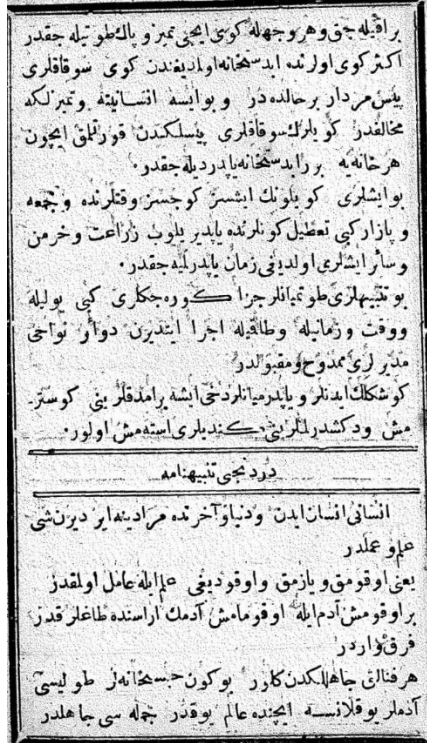 براقیله جق و هر وجهله کوی ایچی تمیز و پاك طوتیله جقدر
اکثر کوی اولرنده ابدستخانه اولمدیغندن کوی سوقاقلری
پیس مردار بر حالده در و بو ایسه انسانیته و تمیزلکه
مخالفدر کویلرك سوقاقلری پیسلکدن قورتلمق ایچون
هر خانه یه بر ابدستخانه یاپدردیله جقدر.
بو ایشلری کویلونك ایشسز کوجسز وقتلرنده و جمعه
و پازار کبی تعطیل کونلرنده یاپدیریلوب زراعت و خرمن
و سائر ایشلری اولدیغی زمان یاپدرلمیه جقدر.
بو تنبیهلری طوتمیانلر جزا کوره جکلری کبی یولیله
و وقت و زمانیله و طاقیله اجرا ایتدیرن دخی نواحی
مدیرلری ممدوح و مقبولدر
کوشکلك ایدنلر و یاپدرمیانلر دخی ایشه یرامدقلرینی کوستر۔
مش ودکشدرلملرینی کندیلری استه مش اولور.
دردنجی تنبیهنامه
انسانی انسان ایدن و دنیا و آخرتده مرادینه ایردیرن شی
علم و عملدر
یعنی اوقومق و یازمق و اوقودیغی علم ایله عامل اولمقدر
بر اوقومش آدم ایله اوقومامش آدمك اراسنده طاغلر قدر
فرق واردر
هر فنالق جاهللکدن کلور بوکون حبسخانه لر طولیسی
آدملر یوقلانسه ایچنده عالم یوقدر جمله سی جاهلدر